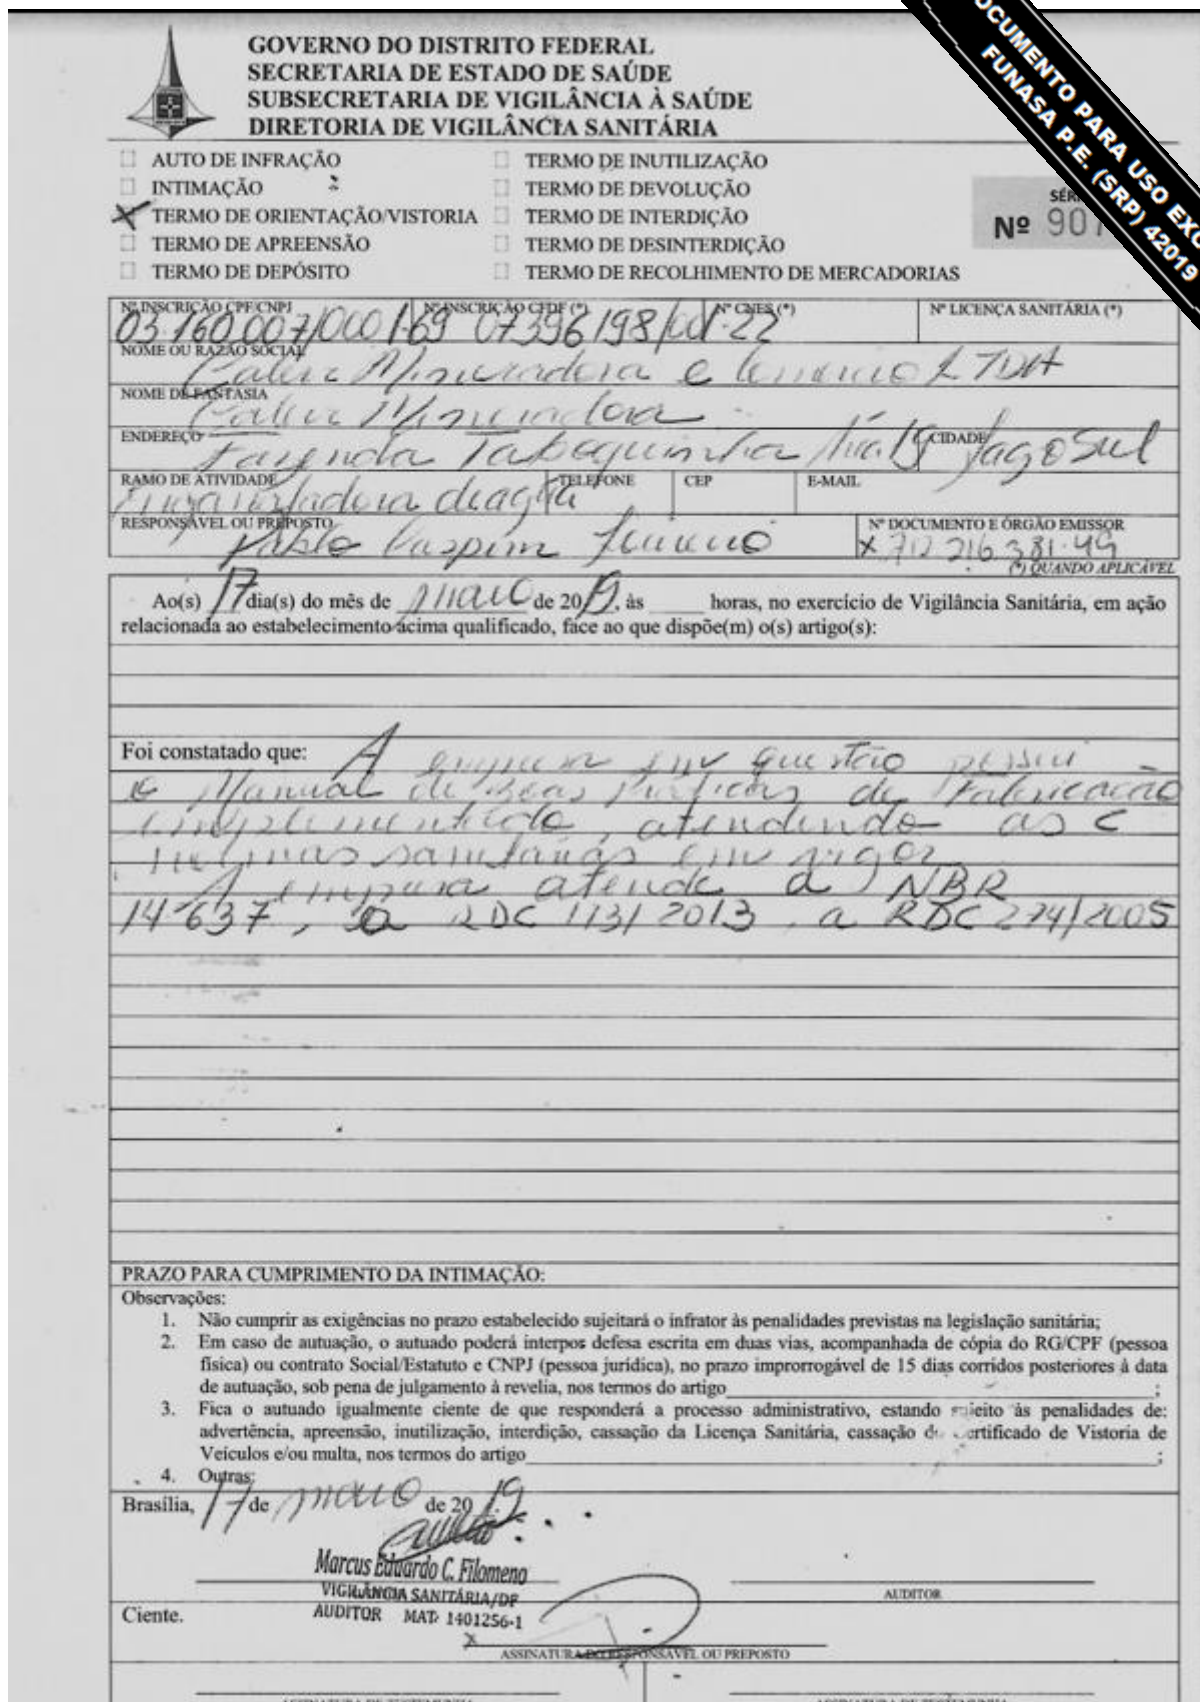 DOCUMENTO PARA USO EXC
FUNASA P.E. (SRP) 42019
GOVERNO DO DISTRITO FEDERAL
SECRETARIA DE ESTADO DE SAÚDE
SUBSECRETARIA DE VIGILÂNCIA À SAÚDE
DIRETORIA DE VIGILÂNCIA SANITÁRIA
AUTO DE INFRAÇÃO TERMO DE INUTILIZAÇÃO
INTIMAÇÃO TERMO DE DEVOLUÇÃO
X TERMO DE ORIENTAÇÃO/VISTORIA TERMO DE INTERDIÇÃO
TERMO DE APREENSÃO TERMO DE DESINTERDIÇÃO
TERMO DE DEPÓSITO TERMO DE RECOLHIMENTO DE MERCADORIAS
SÉRI
Nº 907
Nº INSCRIÇÃO CPF/CNPJ Nº INSCRIÇÃO CFDF (*) Nº CNES (*) Nº LICENÇA SANITÁRIA (*)
03.160.007/0001-69 07396198/001-22
NOME OU RAZÃO SOCIAL
Mineradora e Comercio LTDA
NOME DE FANTASIA
Mineradora
ENDEREÇO CIDADE
Fazenda Taboquinha Lago Sul
RAMO DE ATIVIDADE TELEFONE CEP E-MAIL
Engarrafadora de agua
RESPONSÁVEL OU PREPOSTO Nº DOCUMENTO E ÓRGÃO EMISSOR
Pablo x 712 216 381-49
(*) QUANDO APLICÁVEL
Ao(s) 17 dia(s) do mês de maio de 2019, às ____ horas, no exercício de Vigilância Sanitária, em ação
relacionada ao estabelecimento acima qualificado, face ao que dispõe(m) o(s) artigo(s):
Foi constatado que: A empresa em questão possui
o Manual de Boas Práticas de Fabricação
implementado, atendendo as
normas sanitárias em vigor
A empresa atende a NBR
14637, a RDC 173/2013, a RDC 274/2005
PRAZO PARA CUMPRIMENTO DA INTIMAÇÃO:
Observações:
1. Não cumprir as exigências no prazo estabelecido sujeitará o infrator às penalidades previstas na legislação sanitária;
2. Em caso de autuação, o autuado poderá interpos defesa escrita em duas vias, acompanhada de cópia do RG/CPF (pessoa
física) ou contrato Social/Estatuto e CNPJ (pessoa jurídica), no prazo improrrogável de 15 dias corridos posteriores à data
de autuação, sob pena de julgamento à revelia, nos termos do artigo ;
3. Fica o autuado igualmente ciente de que responderá a processo administrativo, estando sujeito às penalidades de:
advertência, apreensão, inutilização, interdição, cassação da Licença Sanitária, cassação do certificado de Vistoria de
Veículos e/ou multa, nos termos do artigo ;
4. Outras:
Brasília, 17 de maio de 2019
Marcus Eduardo C. Filomeno
VIGILÂNCIA SANITÁRIA/DF
AUDITOR MAT: 1401256-1
AUDITOR
Ciente.
x
ASSINATURA DO RESPONSÁVEL OU PREPOSTO
ASSINATURA DE TESTEMUNHA ASSINATURA DE TESTEMUNHA